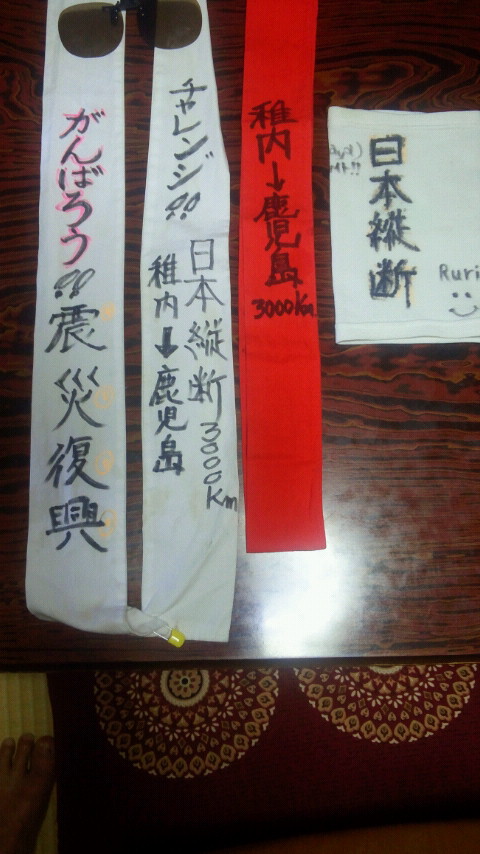 がんばろう!!震災復興
チャレンジ!!
日本縦断3000Km
稚内→鹿児島
稚内→鹿児島
3000Km
日本縦断
Ruri